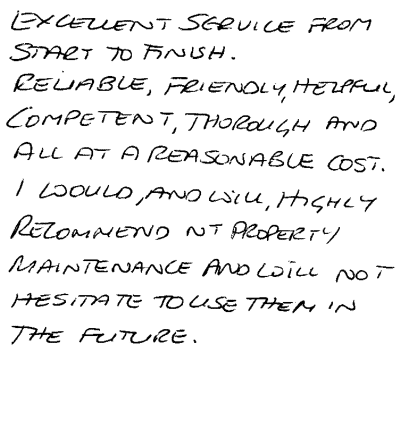 EXCELLENT SERVICE FROM
START TO FINISH.
RELIABLE, FRIENDLY, HELPFUL,
COMPETENT, THOROUGH AND
ALL AT A REASONABLE COST.
I WOULD, AND WILL, HIGHLY
RECOMMEND NT PROPERTY
MAINTENANCE AND WILL NOT
HESITATE TO USE THEM IN
THE FUTURE.